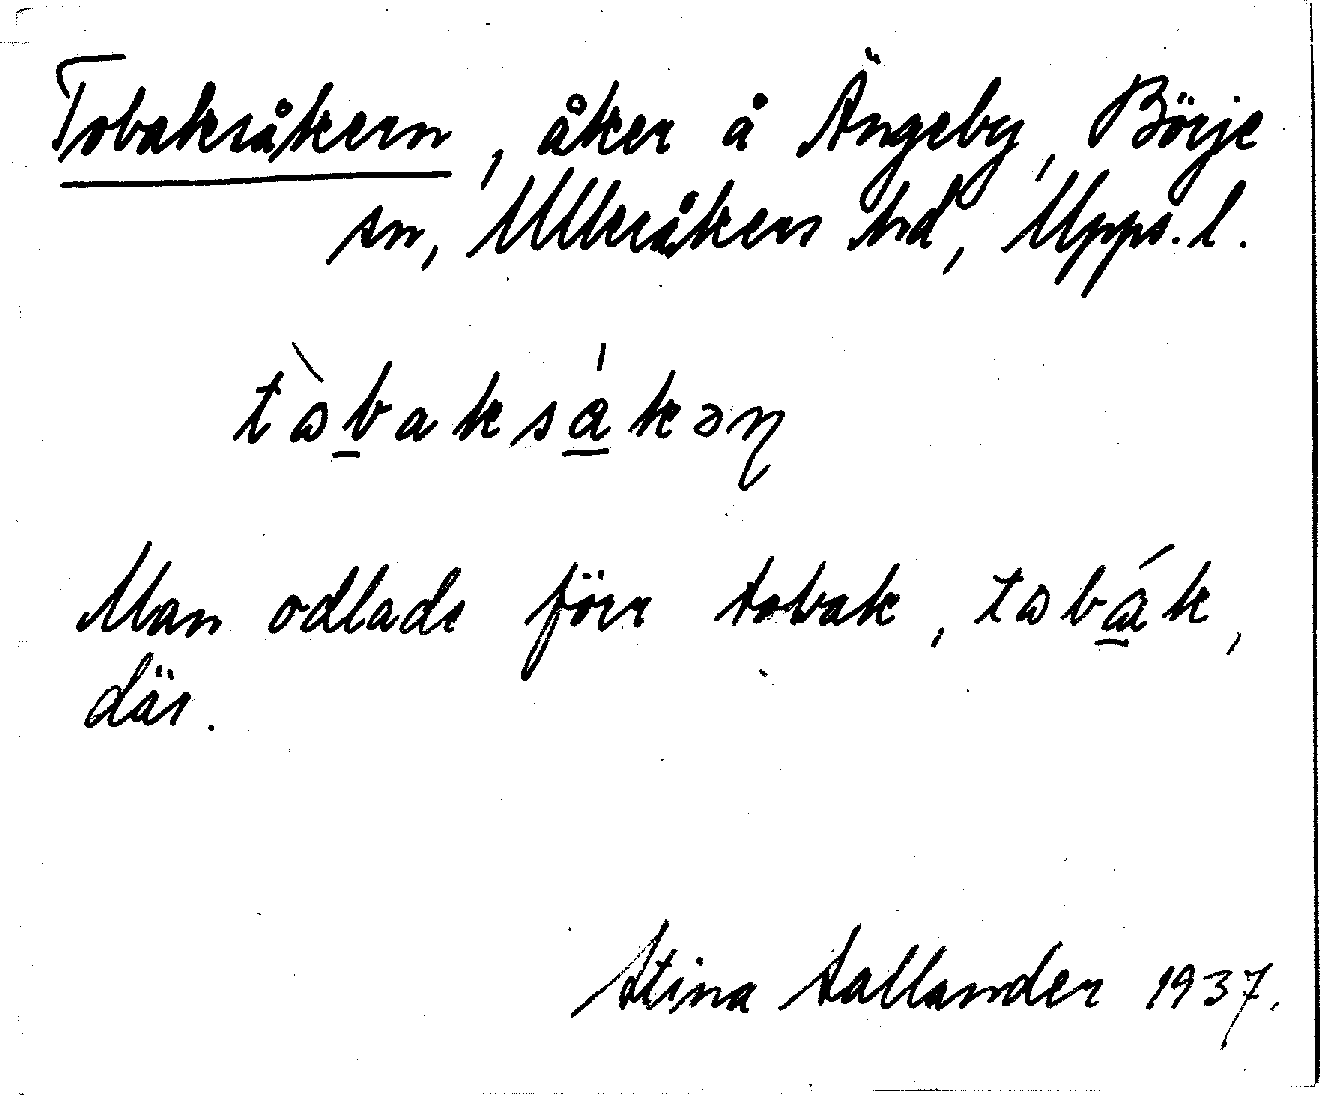 Tobaksåkern, åker å Ängeby, Börje
sn, Ulleråkers hd, Upps. l.
tωbaksåkəɳ
Man odlade förr tobak, tωbak,
där.
Stina Sallander 1937.